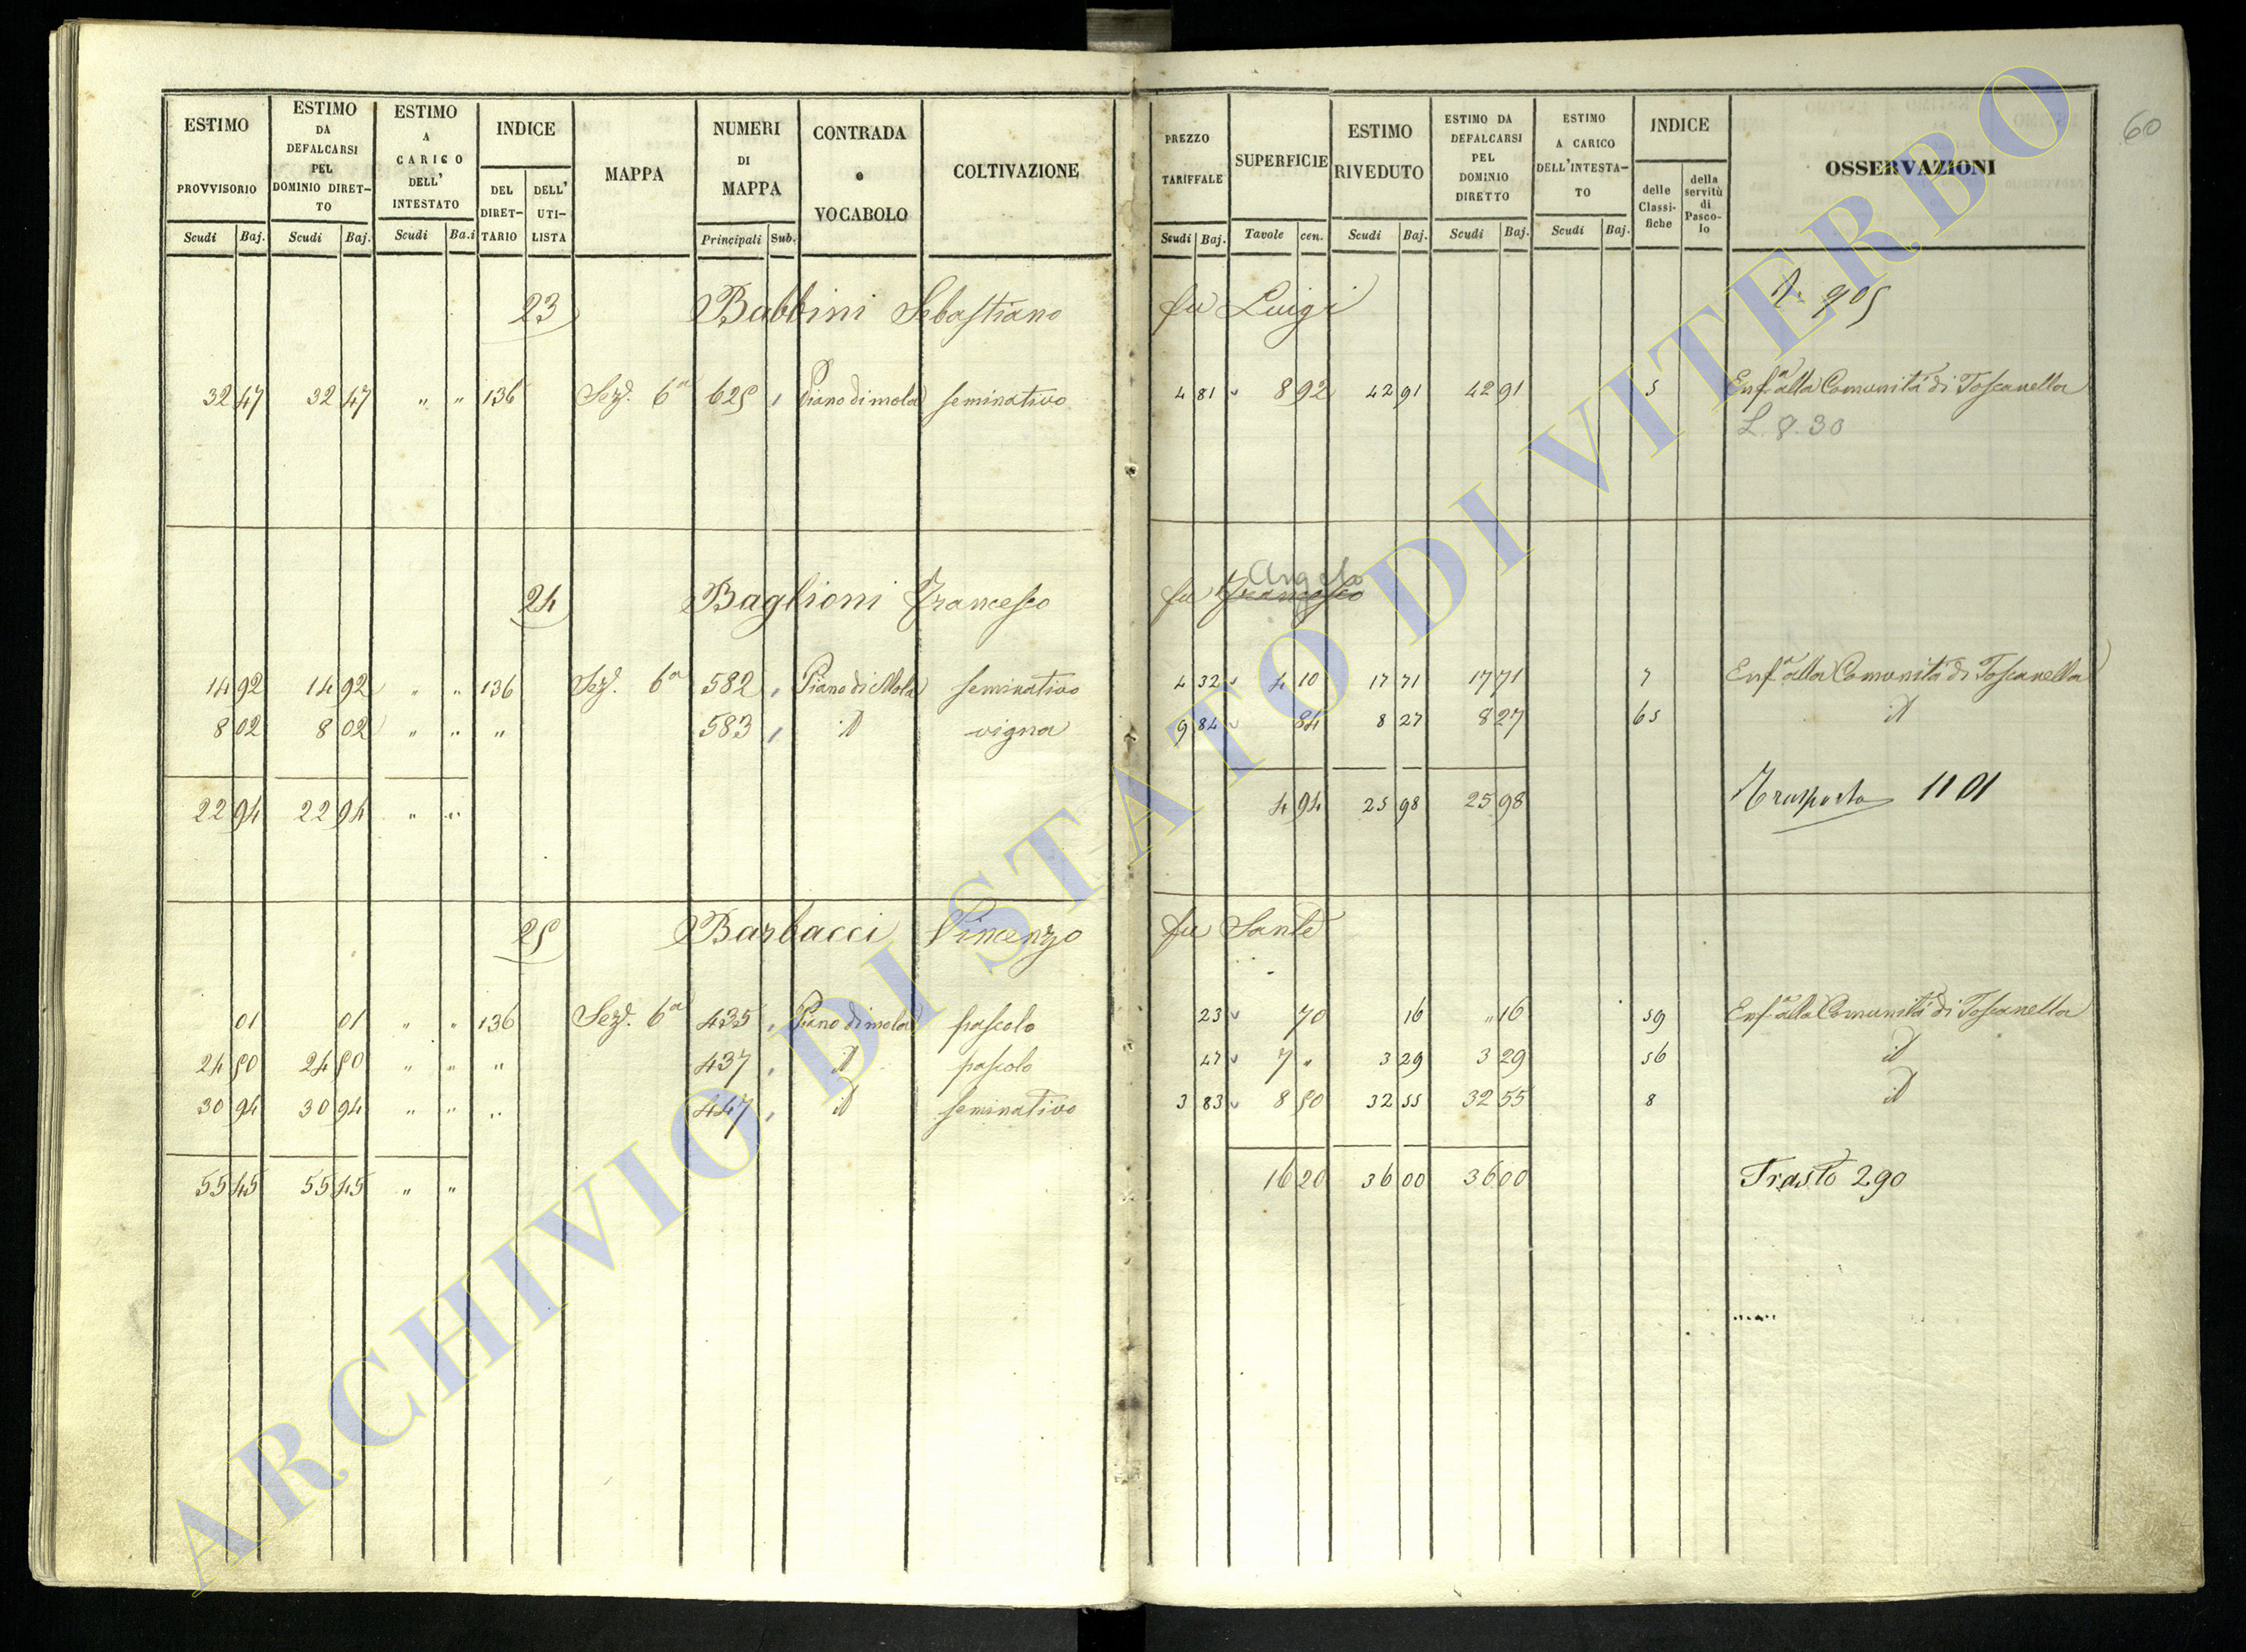 ESTIMO PROVVISORIO Scudi Baj.
ESTIMO DA DEFALCARSI PEL DOMINIO DIRET-TO Scudi Baj.
ESTIMO A CARICO DELL' INTESTATO Scudi Ba.i
INDICE DEL DIRET-TARIO DELL' UTI-LISTA
MAPPA
NUMERI DI MAPPA Principali Sub.
CONTRADA o VOCABOLO
COLTIVAZIONE
PREZZO TARIFFALE Scudi Baj.
SUPERFICIE Tavole cen.
ESTIMO RIVEDUTO Scudi Baj.
ESTIMO DA DEFALCARSI PEL DOMINIO DIRETTO Scudi Baj.
ESTIMO A CARICO DELL'INTESTA-TO Scudi Baj.
INDICE delle Classi-fiche della servitù di Pasco-lo
OSSERVAZIONI
60
23 Babbini Sebastiano fu Luigi 905
32 47 32 47 " " 136 Sez. 6a 625 Piano di mola seminativo 4 81 8 92 42 91 42 91 5 Enfa alla Comunità di Toscanella
L. 8.30
24 Baglioni Francesco fu Francesco Angelo
14 92 14 92 " " 136 Sez. 6a 582 Piano di Mola seminativo 4 32 4 10 17 71 17 71 7 Enfa alla Comunità di Toscanella
8 02 8 02 " " " 583 id vigna 9 84 84 8 27 8 27 65 id
22 94 22 94 " " 4 94 25 98 25 98 Trasporto 1101
25 Barbacci Vincenzo fu Sante
01 01 " " 136 Sez. 6a 435 Piano di mola pascolo 23 70 16 " 16 59 Enfa alla Comunità di Toscanella
24 50 24 50 " " " 437 id pascolo 47 7 " 3 29 3 29 56 id
30 94 30 94 " " " 447 id seminativo 3 83 8 50 32 55 32 55 8 id
55 45 55 45 " " 16 20 36 00 36 00 Trasto 290
ARCHIVIO DI STATO DI VITERBO